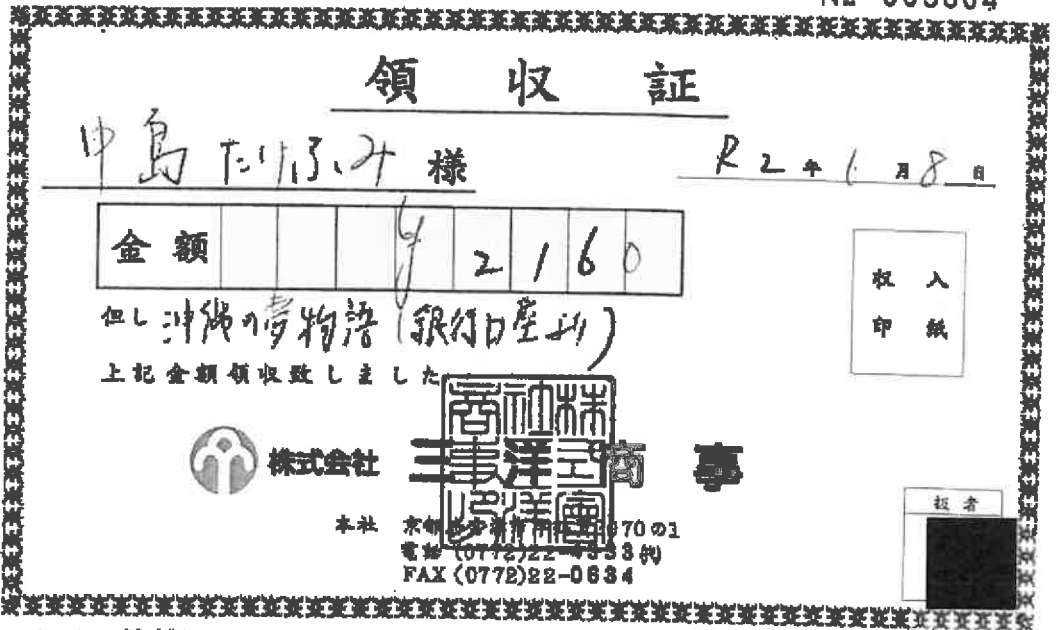 領 収 証
中島たけふみ 様
R2年 6月8日
金額 ¥2160
但し 沖縄の夢物語(銀行口座より)
上記金額領収致しました
収入
印紙
株式会社 三洋商事
本社 京都
電話 (0772)22-4333
FAX (0772)22-0634
扱者